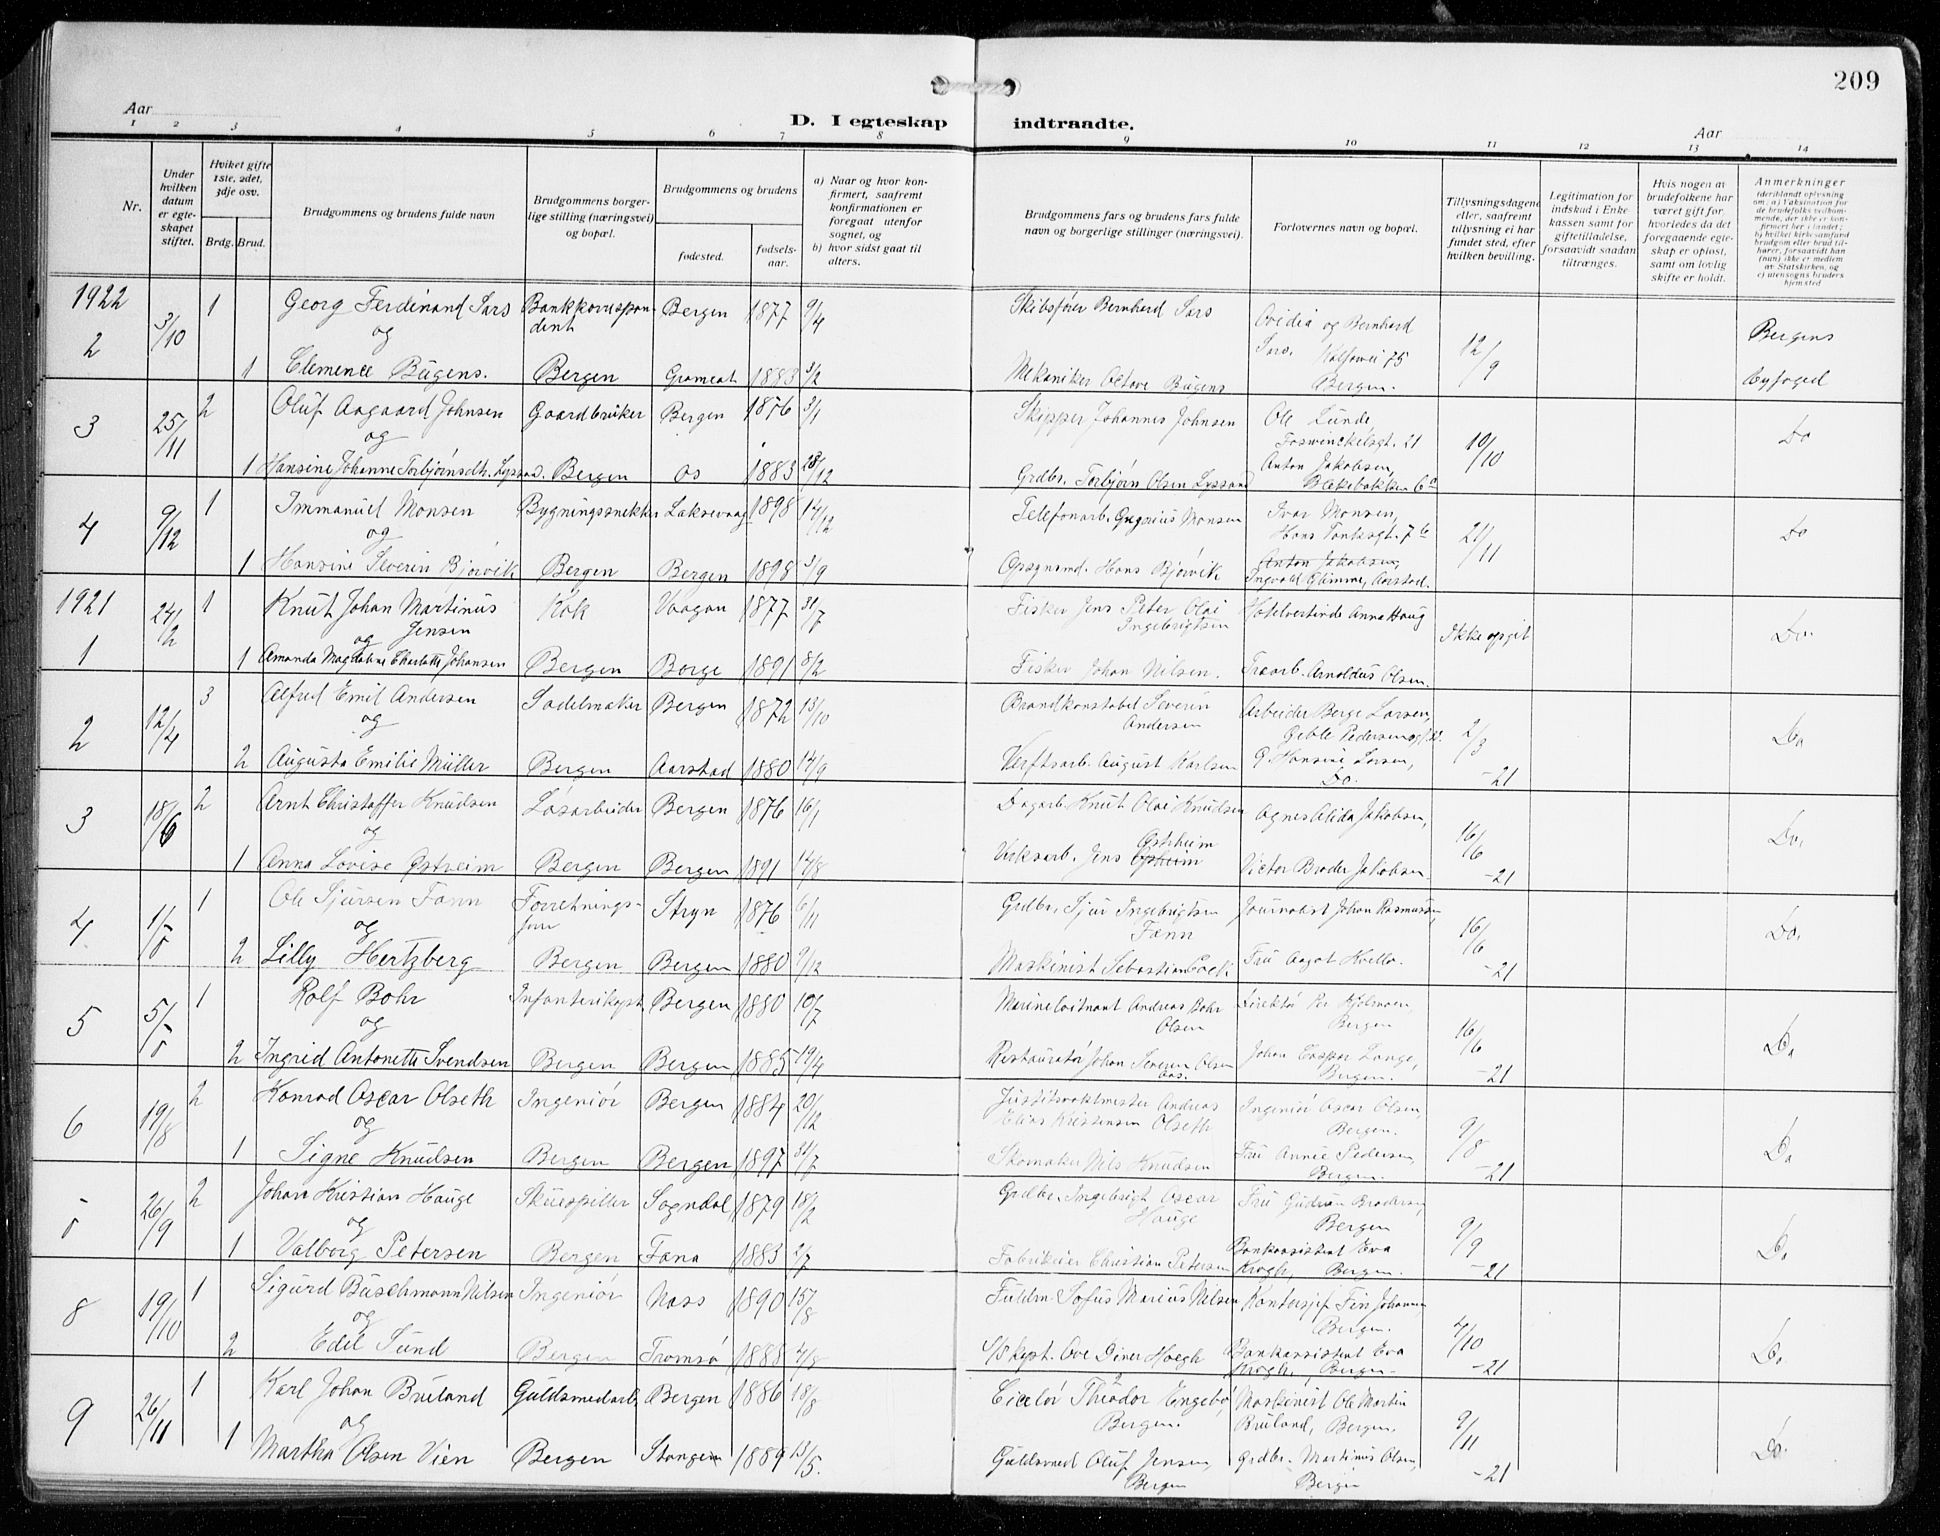 209
Aar
Aar
D. I egteskap indtraadte.
1 2 3 4 5 6 7 8 9 10 11 12 13 14
Nr.
Under hvilken datum er egteskapet stiftet.
Hvilket gifte 1ste, 2det, 3dje osv.
Brdg. Brud.
Brudgommens og brudens fulde navn
Brudgommens borgerlige stilling (næringsvei) og bopæl.
Brudgommens og brudens
fødested.
fødselsaar.
a) Naar og hvor konfirmert, saafremt konfirmationen er foregaat utenfor sognet, og
b) hvor sidst gaat til alters.
Brudgommens fars og brudens fars fulde navn og borgerlige stillinger (næringsvei).
Forlovernes navn og bopæl.
Tillysningsdagene eller, saafremt tillysning ei har fundet sted, efter hvilken bevilling.
Legitimation for indskud i Enkekassen samt for giftetilladelse, forsaavidt saadan tiltrænges.
Hvis nogen av brudefolkene har været gift før, hvorledes da det foregaaende egteskap er opløst, samt om lovlig skifte er holdt.
Anmerkninger
1922
2 3/10 1 Georg Ferdinand Sars Bankkorrespondent Bergen 1877 9/4 Skibsfører Bernhard Sars Ovidia og Bernhard Sars. Kalfarvei 75 Bergen. 12/9 Bergens Byfoged
og
1 Clemence Bugens. Bergen 1883 3/2 Mekaniker Octave Bugens
3 25/11 2 Oluf Aagaard Johnsen Gaardbruker Bergen 1876 3/1 Skipper Johannes Johnsen Ole Lunde, Foswinckelsgt. 21 10/10 Do
og
1 Hansine Johanne Torbjørnsdtr. Bergen Os 1883 28/12 Grdbr. Torbjørn Olsen Lyssand Anton Jakobsen, Blekebakken 6a
4 9/12 1 Immanuel Monsen Bygningssnekker Laksevaag 1898 14/12 Telefonarb. Gregorius Monsen Ivar Monsen, Hans Tanksgt. 7b 21/11 Do
og
1 Hansine Severin Bjørvik Bergen Bergen 1898 3/9 Hans Bjørvik Anton Jakobsen, Ingvald Glimme, Aarstad.
1921
1 24/2 1 Knut Johan Martinus Jensen Kok Vaagan 1877 31/7 Fisker Jens Peter Olai Ingebrigtsen Hotelvertinde Anna Haug Ikke opgit Do.
og
1 Amanda Magdalene Charlotte Johansen Bergen Borge 1891 8/2 Fisker Johan Nilsen. Træarb. Arnoldus Olsen.
2 12/4 3 Alfred Emil Andersen Sadelmaker Bergen 1872 13/10 Brandkonstabel Severin Andersen Arbeider Berge Larsen, Geble Pedersensgt. 2/3 -21 Do
og
2 Augusta Emilie Müller Bergen Aarstad 1880 14/9 Verftsarb. August Karlsen G. Hansine Larsen, Do.
3 18/6 2 Arnt Christoffer Knudsen Løsarbeider Bergen 1876 16/1 Dagarb. Knut Olai Knudsen Agnes Alida Jakobsen, 16/6 -21 Do.
og
1 Anna Lovise Østreim Bergen Bergen 1891 14/8 Verksarb. Jens Østrheim Victor Broder Jakobsen.
4 1/8 1 Ole Sjursen Fænn Forretningsfører Stryn 1876 6/11 Grdbr. Sjur Ingebrigtsen Fænn Journalist Johan Rasmussen, 16/6 -21 Do.
og
2 Lilly Hertzberg Bergen Bergen 1880 9/12 Maskinist Sebastian Fru Aagot Hvello.
5 5/8 1 Rolf Bohr Infanterikapt. Bergen 1880 10/7 Marineløitnant Andreas Bohr Olsen Direktør Per Kjølmoen, Bergen 16/6 -21 Do
og
2 Ingrid Antonette Svendsen Bergen Bergen 1885 19/4 Restauratør Johan Severin Olsen Johan Caspar Lange, Bergen.
6 19/8 2 Konrad Oscar Olseth Ingeniør Bergen 1884 20/12 Justitsvaktmester Andreas Elias Kristensen Olseth Ingeniør Oscar Olsen, Bergen. 9/8 -21 Do
og
1 Signe Knudsen Bergen Bergen 1897 31/7 Skomaker Nils Knudsen Fru Annie Pedersen, Bergen.
26/9 2 Johan Kristian Hauge Skuespiller Sogndal 1879 18/2 Grdbr. Ingebrigt Oscar Hauge Fru Gudrun Brodersen, Bergen 9/9 -21 Do
og
1 Valborg Petersen Bergen Fana 1883 2/7 Fabrikeier Christian Petersen Bankassistent Eva Krogh, Bergen.
8 19/10 1 Sigurd Buschmann Nilsen Ingeniør Næss 1890 15/8 Fuldm. Sofus Marius Nilsen Kontorsjef Fin Johannesen Bergen. 4/10 -21 Do
og
2 Edel Sund Bergen Tromsø 1888 4/8 S/Skapt. Ove Diner Høegh Bankassistent Eva Krogh, Bergen.
9 26/11 1 Karl Johan Bruland Guldsmedarb. Bergen 1886 18/8 Ciselør Theodor Engebø, Bergen. Maskinist Ole Martin Bruland, Bergen. 9/11 -21 Do.
og
1 Martha Olsen Vien Bergen Stangen 1889 13/5. Guldsmed Oluf Jensen, Bergen Grdbr. Martinus Olsen, Bergen